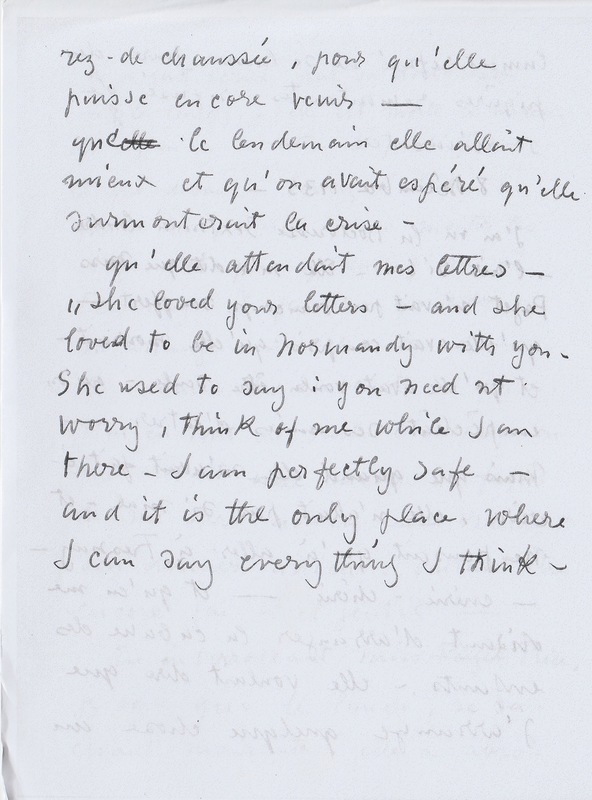 rez-de chaussée, pour qu'elle
puisse encore venir —
qu'elle le lendemain elle allait
mieux et qu'on avait espéré qu'elle
surmonterait la crise -
qu'elle attendait mes lettres -
"She loved your letters - and she
loved to be in Normandy with you.
She used to say : you need not
worry, think of me while I am
there - I am perfectly safe -
and it is the only place where
I can say everything I think -